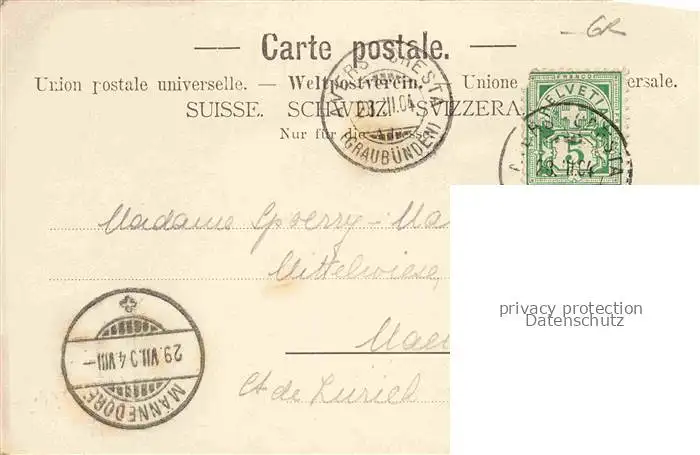 GR
— Carte postale. —
Union postale universelle. — Weltpostverein. — Unione ersale.
SUISSE. SCHWEIZ. SVIZZERA.
Nur für die Adresse
AVERS-CRESTA
28.VII.04
(GRAUBÜNDEN)
FRANCO
HELVETIA
5
Madame Spoerry-Ma
Mittelwiese,
Maen
Ct de Zürich
29.VII.04.VIII—
MÄNNEDORF
privacy protection
Datenschutz